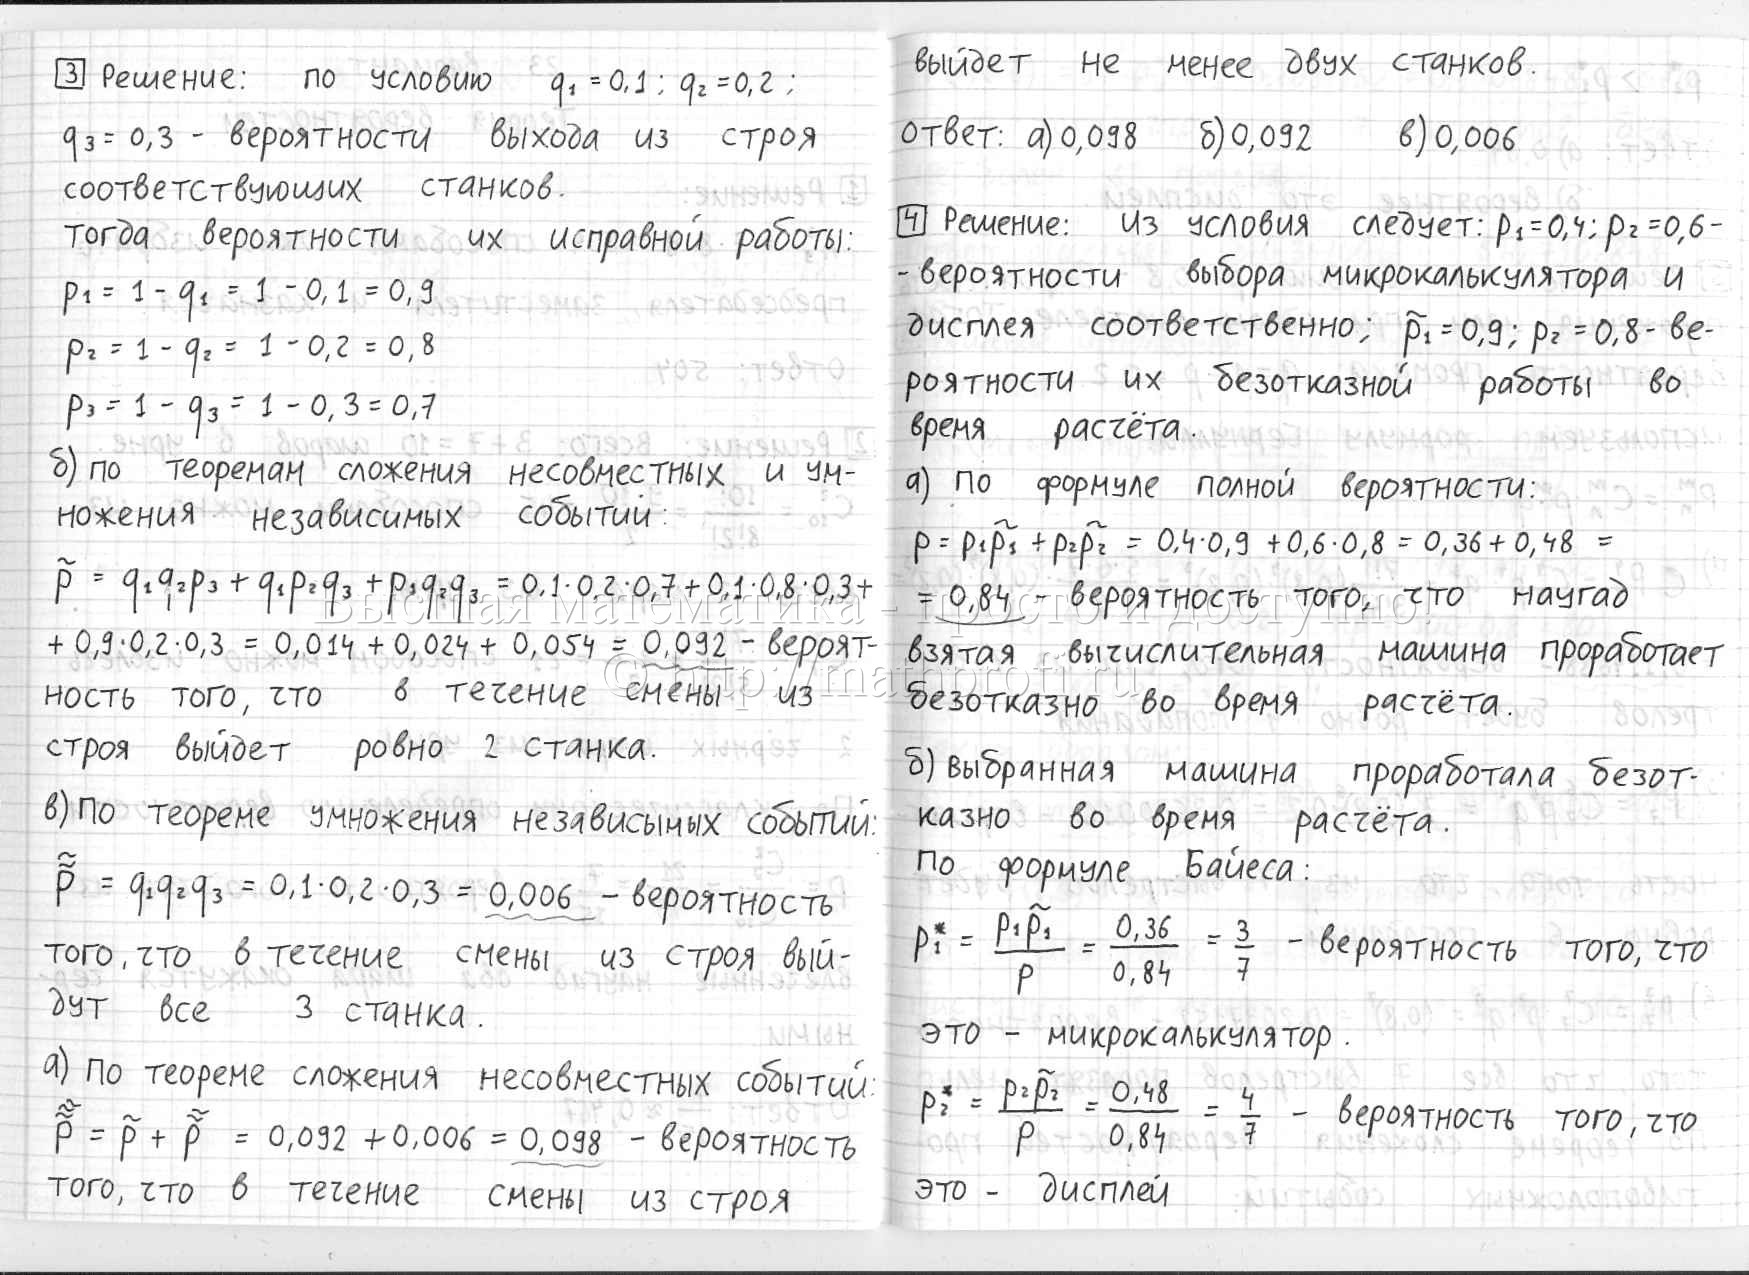 3 Решение: по условию q₁ = 0,1; q₂ = 0,2;
q₃ = 0,3 - вероятности выхода из строя
соответствующих станков.
Тогда вероятности их исправной работы:
p₁ = 1 - q₁ = 1 - 0,1 = 0,9
p₂ = 1 - q₂ = 1 - 0,2 = 0,8
p₃ = 1 - q₃ = 1 - 0,3 = 0,7
б) По теоремам сложения несовместных и ум-
ножения независимых событий:
p̃ = q₁q₂p₃ + q₁p₂q₃ + p₁q₂q₃ = 0,1·0,2·0,7 + 0,1·0,8·0,3 +
+ 0,9·0,2·0,3 = 0,014 + 0,024 + 0,054 = 0,092 - вероят-
ность того, что в течение смены из
строя выйдет ровно 2 станка.
в) По теореме умножения независымых событий:
p̃̃ = q₁q₂q₃ = 0,1·0,2·0,3 = 0,006 - вероятность
того, что в течение смены из строя вый-
дут все 3 станка.
а) По теореме сложения несовместных событий:
p̃̃̃ = p̃ + p̃̃ = 0,092 + 0,006 = 0,098 - вероятность
того, что в течение смены из строя
выйдет не менее двух станков.
Ответ: а) 0,098 б) 0,092 в) 0,006
4 Решение: Из условия следует: p₁ = 0,4; p₂ = 0,6 -
- вероятности выбора микрокалькулятора и
дисплея соответственно; p̃₁ = 0,9; p₂ = 0,8 - ве-
роятности их безотказной работы во
время расчёта.
а) По формуле полной вероятности:
p = p₁p̃₁ + p₂p̃₂ = 0,4·0,9 + 0,6·0,8 = 0,36 + 0,48 =
= 0,84 - вероятность того, что наугад
взятая вычислительная машина проработает
безотказно во время расчёта.
б) Выбранная машина проработала безот-
казно во время расчёта.
По формуле Байеса:
p₁* = p₁p̃₁/p = 0,36/0,84 = 3/7 - вероятность того, что
это - микрокалькулятор.
p₂* = p₂p̃₂/p = 0,48/0,84 = 4/7 - вероятность того, что
это - дисплей
Высшая математика - просто и доступно!
© http://mathprofi.ru